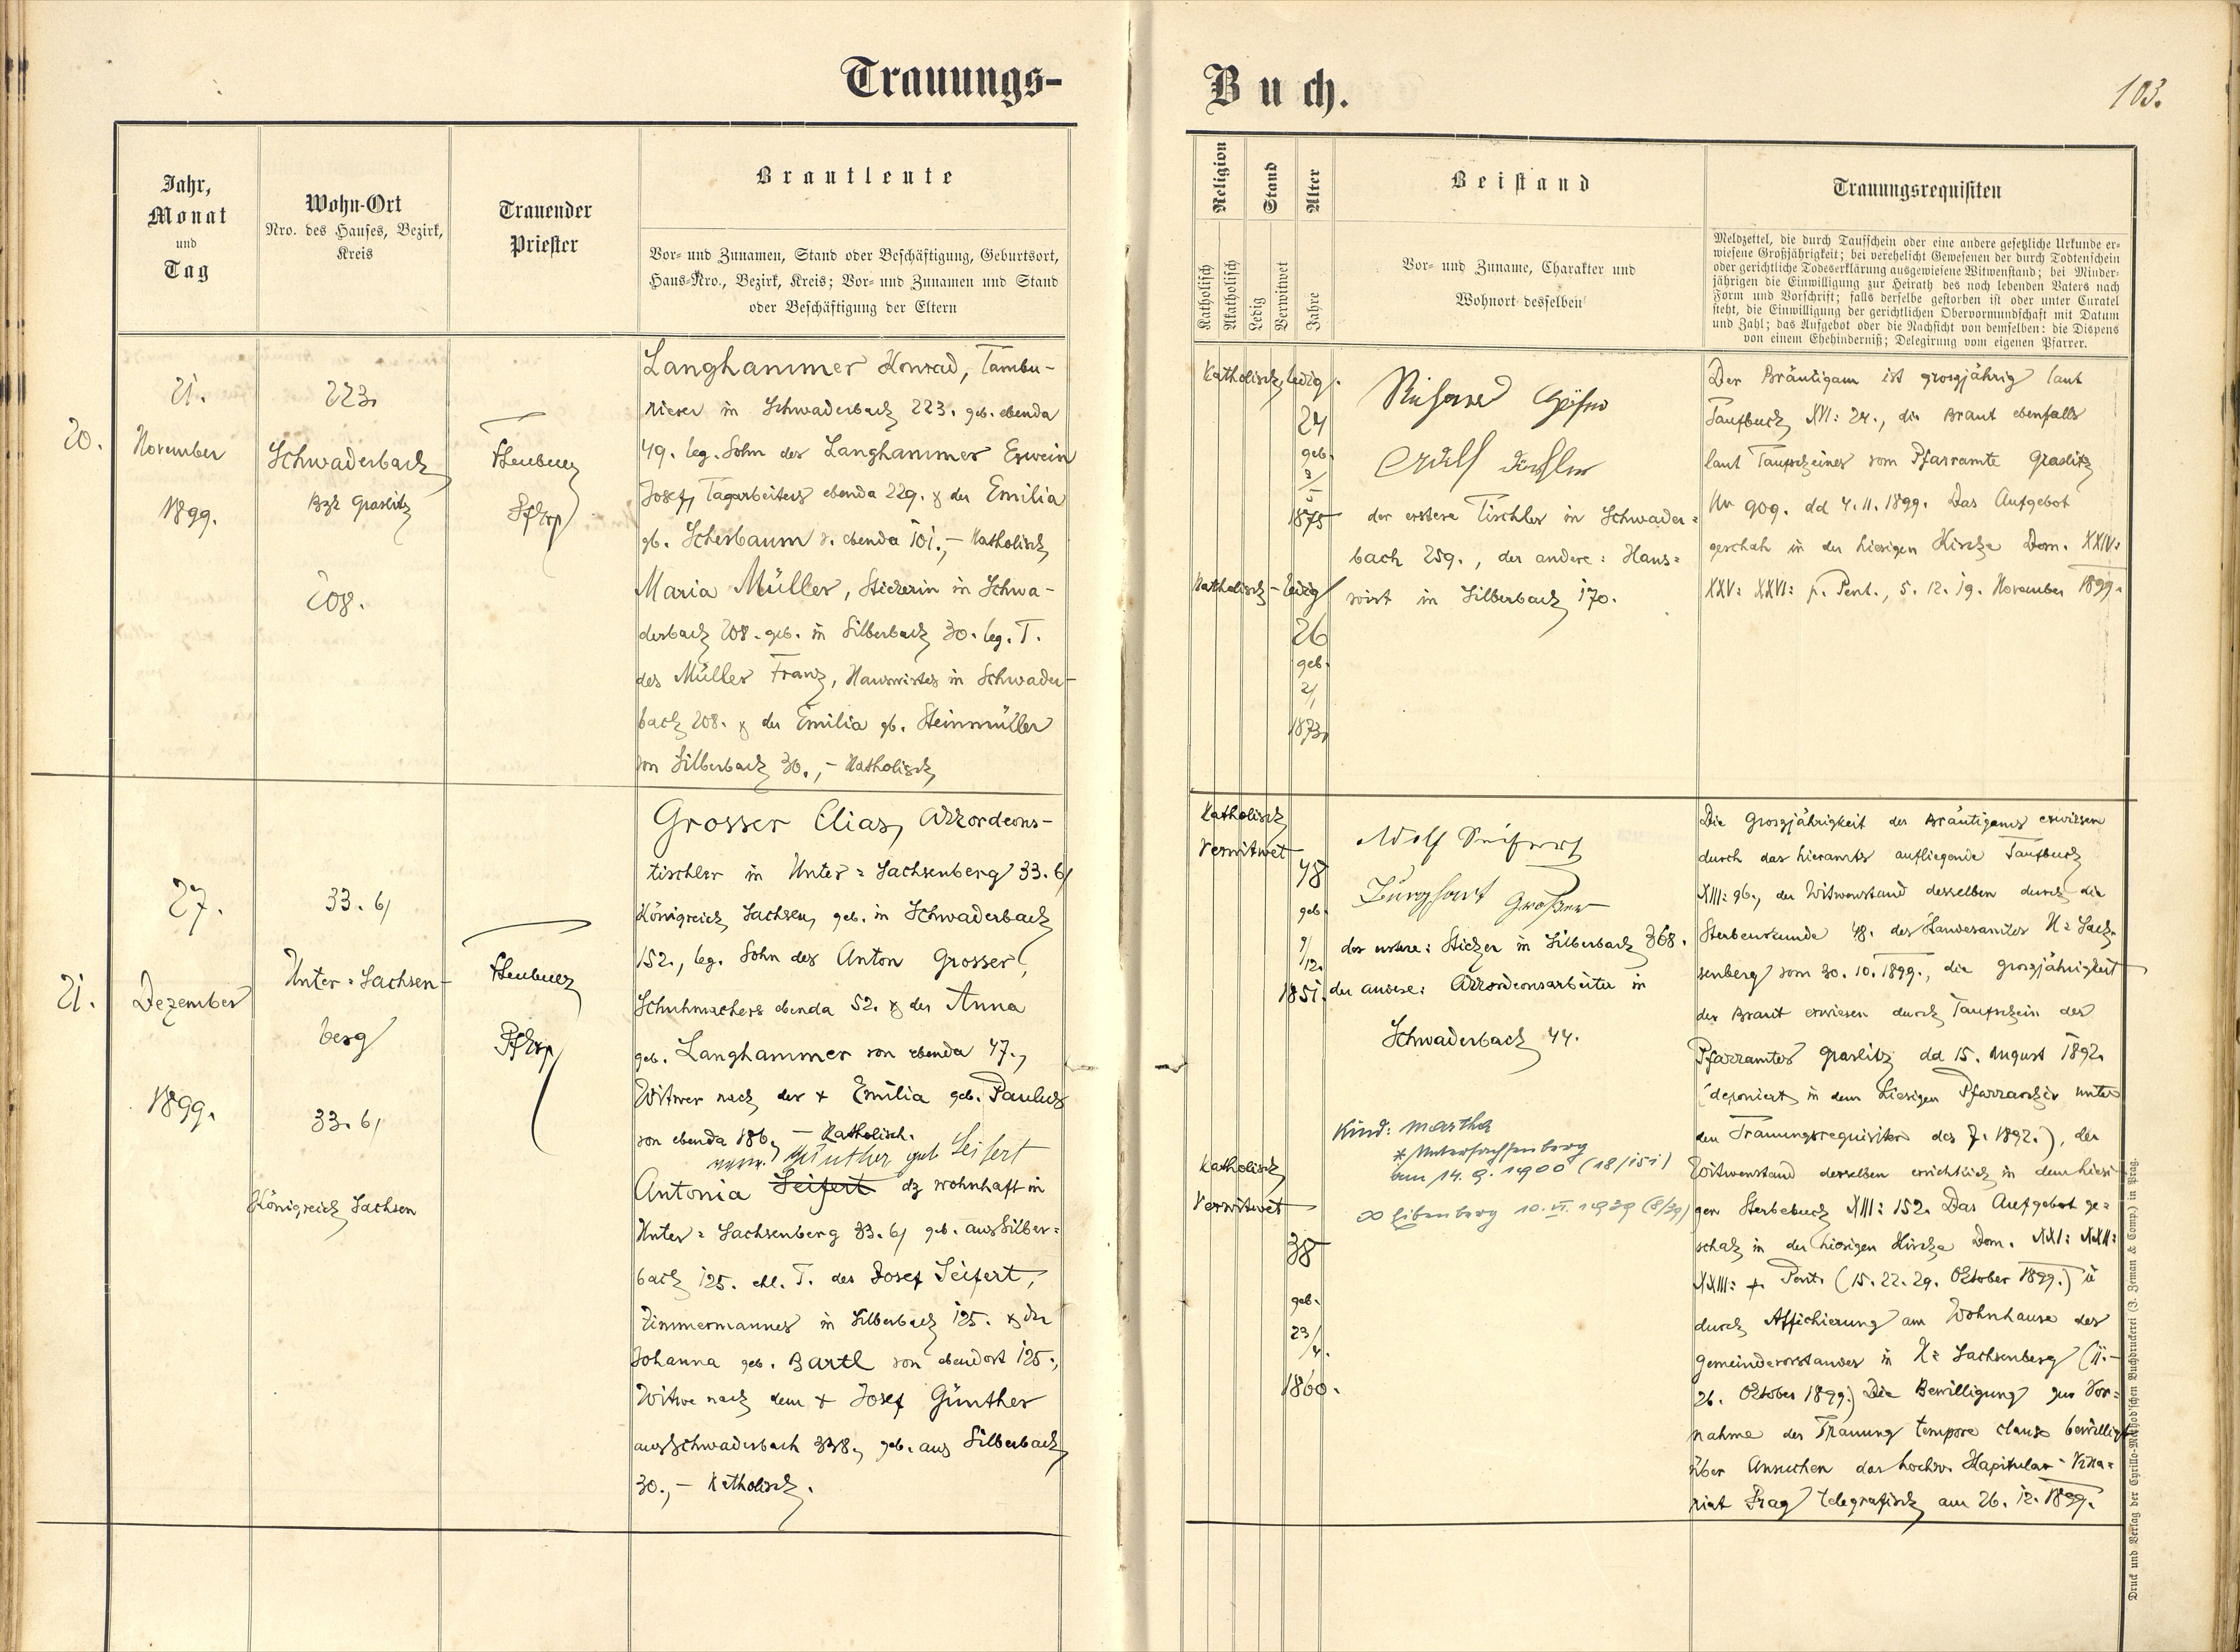 Trauungs-
Jahr,
Monat
und
Tag
Wohn-Ort
Nro. des Hauses, Bezirk,
Kreis
Trauender
Priester
Brautleute
Vor- und Zunamen, Stand oder Beschäftigung, Geburtsort,
Haus-Nro., Bezirk, Kreis; Vor- und Zunamen und Stand
oder Beschäftigung der Eltern
20.
21.
November
1899.
223.
Schwaderbach
Bzk Graslitz
208.
Pfrr
Langhammer Konrad, Tambu-
rierer in Schwaderbach 223. geb. ebenda
49. leg. Sohn des Langhammer Erwein
Josef, Tagarbeiters ebenda 229. & der Emilia
gb. Scherbaum v. ebenda 101., - Katholisch,
Maria Müller, Stickerin in Schwa-
derbach 208. geb. in Silberbach 30. leg. T.
des Müller Franz, Hauswirtes in Schwader-
bach 208. & der Emilia gb. Steinmüller
von Silberbach 30., - Katholisch,
21.
27.
Dezember
1899.
33. 6/
Unter-Sachsen-
berg
33. 6/
Königreich Sachsen
Pfrr
Grosser Elias, Akkordeons-
tischler in Unter-Sachsenberg 33. 6/
Königreich Sachsen, geb. in Schwaderbach
152., leg. Sohn des Anton Grosser,
Schuhmachers ebenda 52. & der Anna
geb. Langhammer von ebenda 47.,
Witwer nach der + Emilia geb. Paulus
von ebenda 186, - Katholisch.
verw. Günther geb Seifert
Antonia Seifert dz wohnhaft in
Unter-Sachsenberg 33. 6/ geb. aus Silber-
bach 125. ehl. T. des Josef Seifert,
Zimmermannes in Silberbach 125. & der
Johanna geb. Bartl von ebendort 125.,
Witwe nach dem + Josef Günther
aus Schwaderbach 338., geb. aus Silberbach
30., - Katholisch.
Buch.
103.
Religion
Katholisch
Akatholisch
Stand
Ledig
Verwitwet
Alter
Jahre
Beistand
Vor- und Zuname, Charakter und
Wohnort desselben
Trauungsrequisiten
Meldzettel, die durch Taufschein oder eine andere gesetzliche Urkunde er-
wiesene Großjährigkeit; bei verehelicht Gewesenen der durch Todtenschein
oder gerichtliche Todeserklärung ausgewiesene Witwenstand; bei Minder-
jährigen die Einwilligung zur Heirath des noch lebenden Vaters nach
Form und Vorschrift; falls derselbe gestorben ist oder unter Curatel
steht, die Einwilligung der gerichtlichen Obervormundschaft mit Datum
und Zahl; das Aufgebot oder die Nachsicht von demselben: die Dispens
von einem Ehehinderniß; Delegirung vom eigenen Pfarrer.
Katholisch, ledig.
24
geb.
1875
Katholisch - ledig
26
geb.
2/1
1873,
der erstere Tischler in Schwader-
bach 259., der andere: Haus-
wirt in Silberbach 170.
Der Bräutigam ist grosjährig laut
Taufbuch XVI: 24., die Braut ebenfalls
laut Taufscheines vom Pfarramte Graslitz
Nr 909. dd 4.11.1899. Das Aufgebot
geschah in der hiesigen Kirche Dom. XXIV:
XXV: XXVI: p. Pent., 5. 12. 19. November 1899.
Katholisch
Verwitwet
48
geb.
9/12.
1851.
Adolf Seifert
Burghart Großer
der erstere: Sticker in Silberbach 368.
der andere: Akkordeonsarbeiter in
Schwaderbach 44.
Kind: Martha
* Untersachsenberg
am 14. 9. 1900 (18/151)
∞ Eibenberg 10. VI. 1939 (8/39)
Katholisch
Verwitwet
38
geb.
23/4.
1860.
Die Grosjährigkeit des Bräutigams erwiesen
durch das hieramts aufliegende Taufbuch
XIII: 96., der Witwerstand desselben durch die
Sterbeurkunde 48. des Standesamtes U-Sach-
senberg vom 30.10.1899., die Grosjährigkeit
der Braut erwiesen durch Taufschein des
Pfarramtes Graslitz dd 15. August 1892.
(deponiert in dem hiesigen Pfarrarchiv unter
den Trauungsrequisiten des J. 1892.), der
Witwenstand derselben ersichtlich in dem hiesi-
gen Sterbebuch XIII: 152. Das Aufgebot ge-
schah in der hiesigen Kirche Dom. XXI: XXII:
XXIII: p. Pent. (15. 22. 29. Oktober 1899.) u
durch Affichierung am Wohnhause des
Gemeindevorstandes in U- Sachsenberg (11.-
26. Oktober 1899.) Die Bewilligung zur Vor-
nahme der Trauung tempore clauso bewilligt
über Ansuchen das hochw. Kapitular-Vika-
riat Prag telegrafisch am 26. 12. 1899.
Druck und Verlag der Cyrillo-Method'schen Buchdruckerei (J. Zeman & Comp.) in Prag.